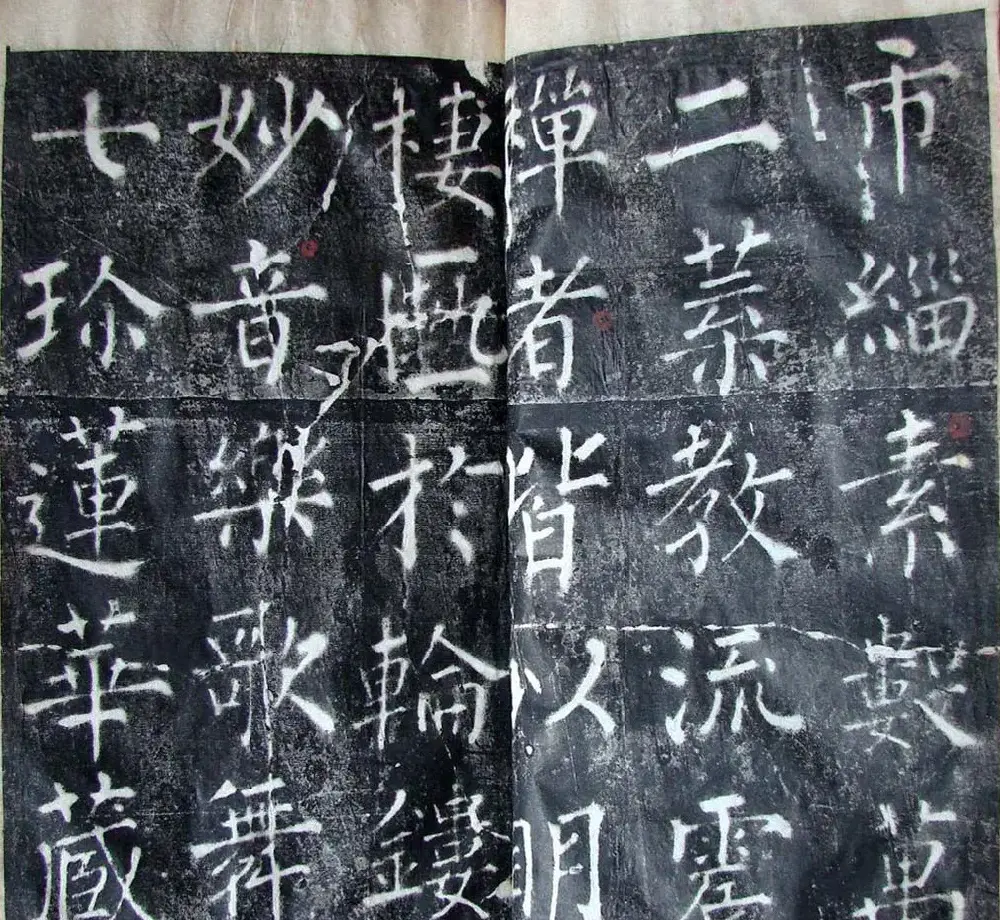 市緇素數萬
二教流
禪者皆以明
棲於輪鏤
妙音樂歌舞
七珍蓮華藏